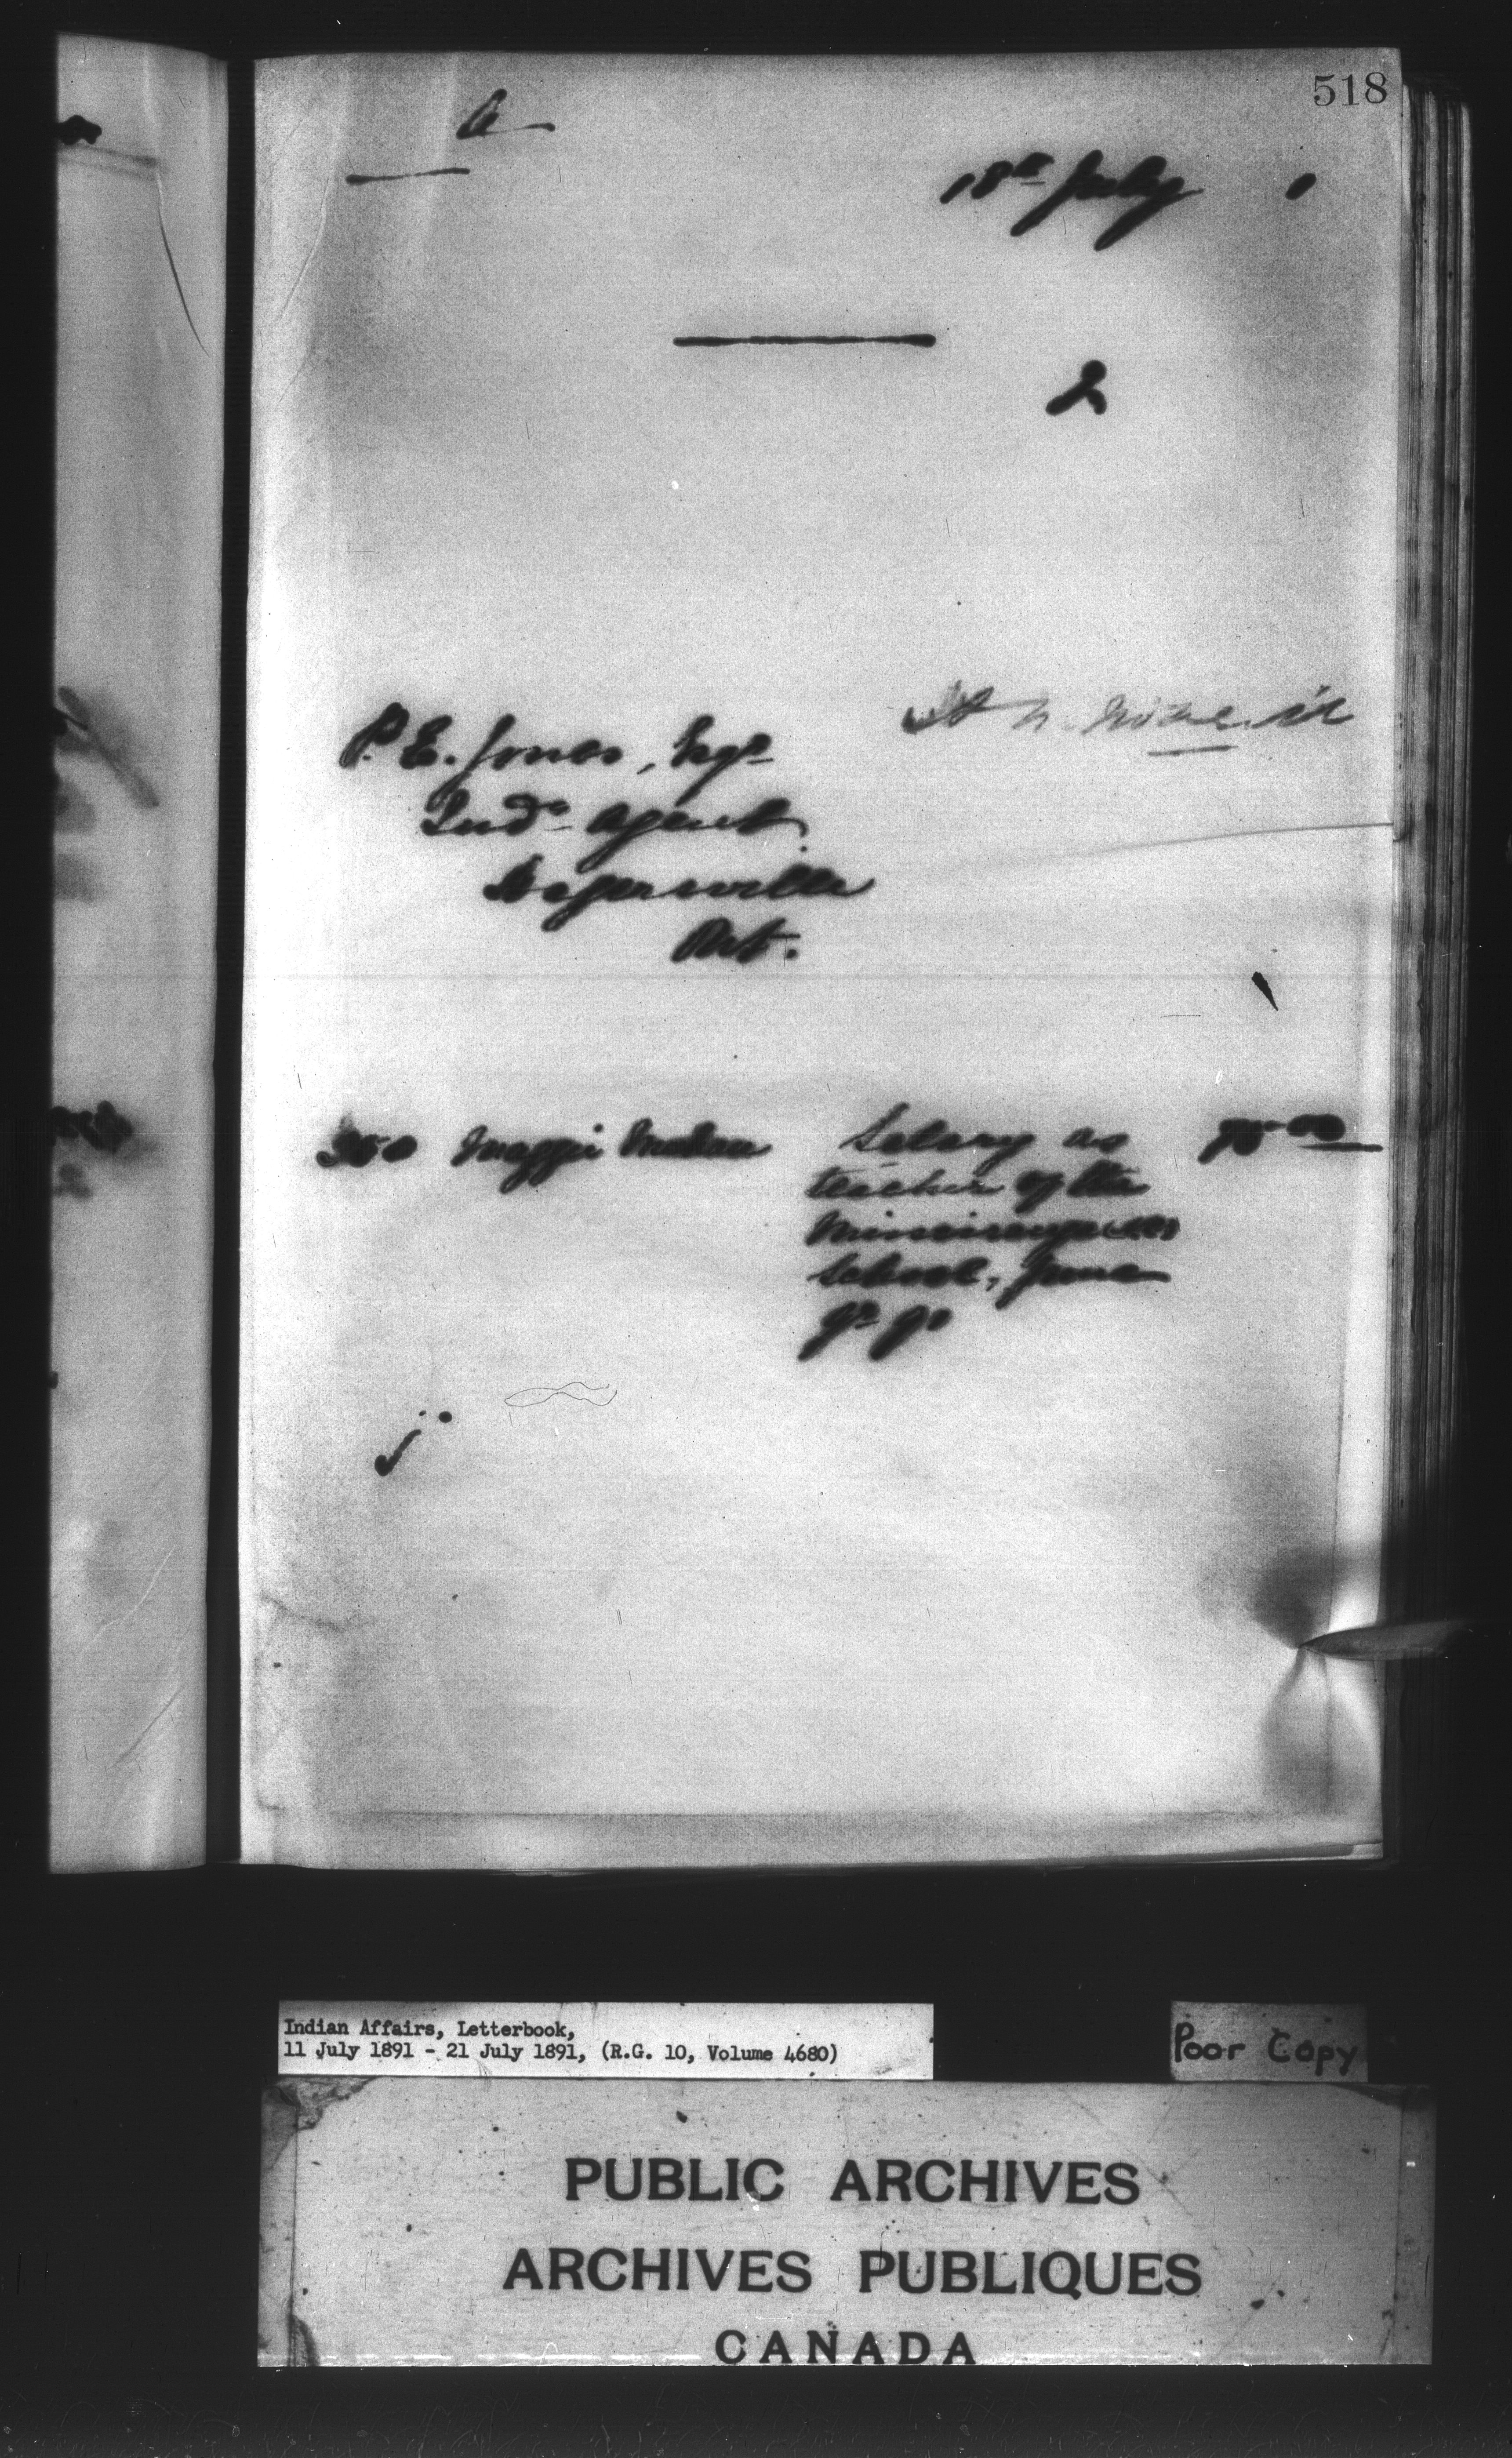 518
a
18th July 1
2
P. E. Jones, Esqr
Indn Agent
Hagersville
Ont.
350 Maggie Salary as 75.00
teacher of the
Mississagua
School, June
qr.
Indian Affairs, Letterbook,
11 July 1891 - 21 July 1891, (R.G. 10, Volume 4680)
Poor Copy
PUBLIC ARCHIVES
ARCHIVES PUBLIQUES
CANADA